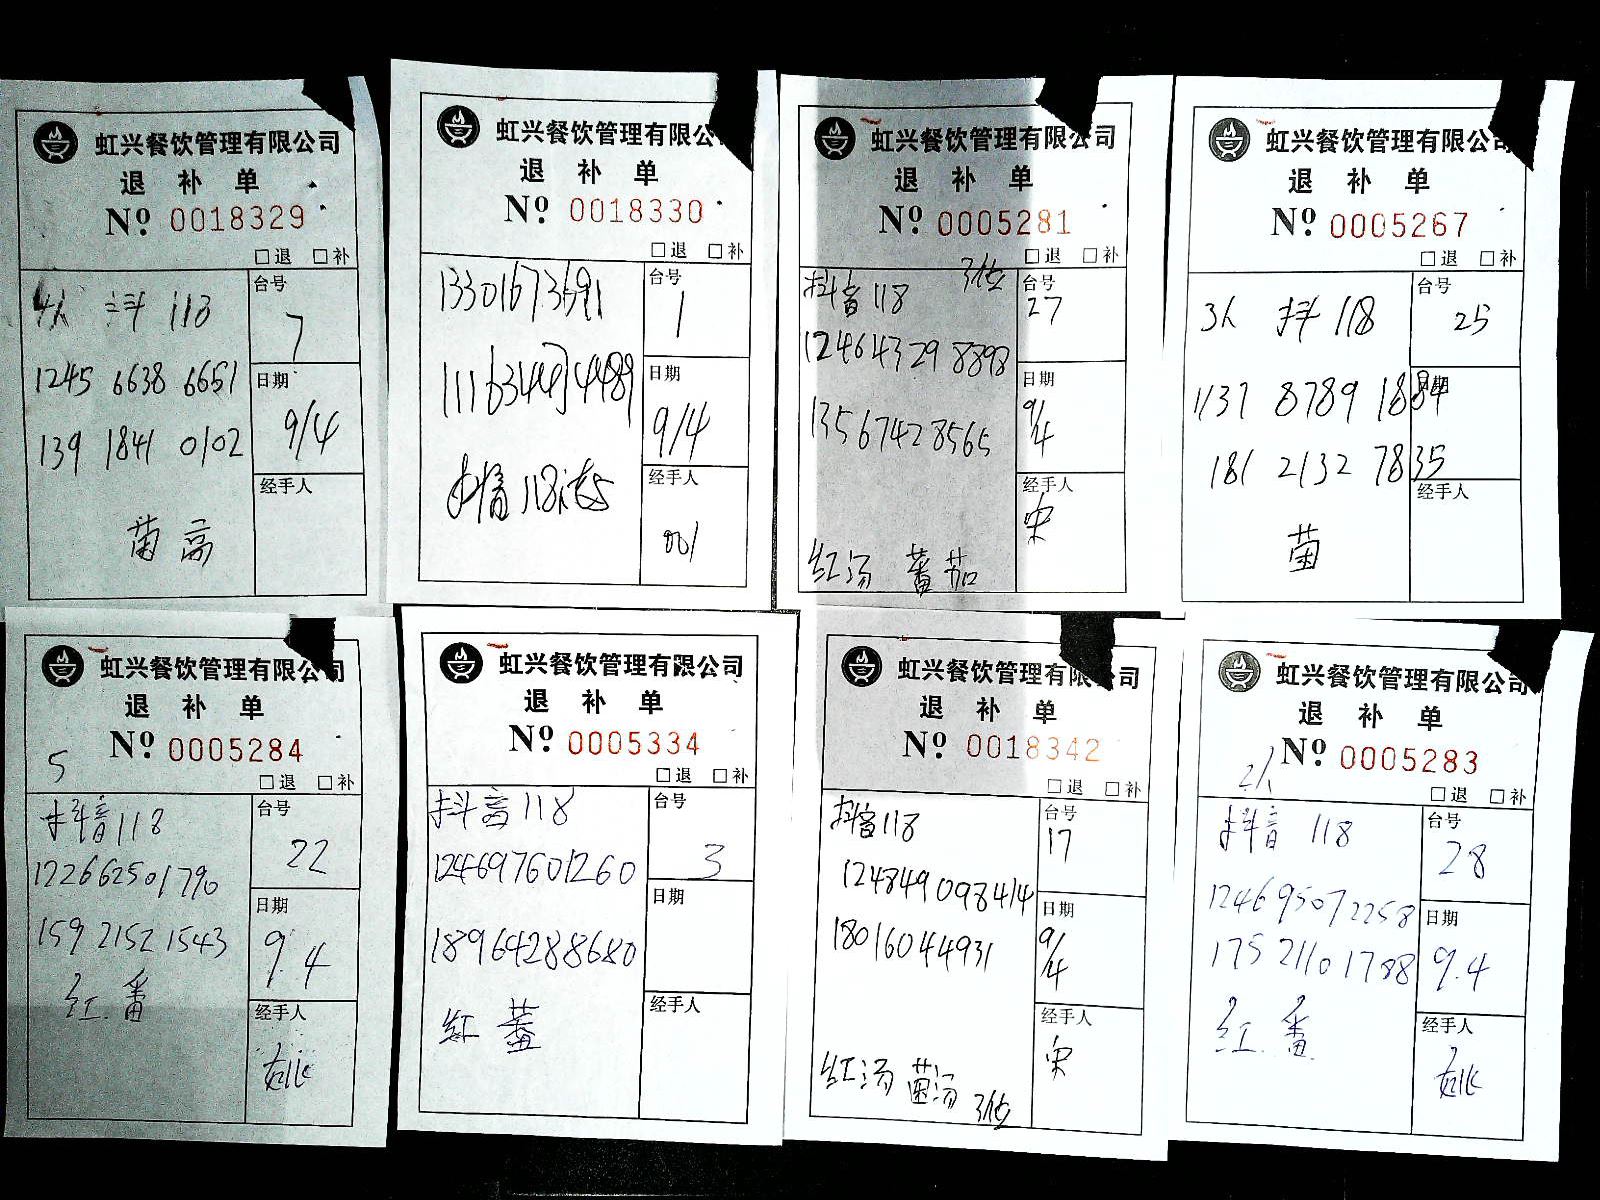 虹兴餐饮管理有限公司
退 补 单
Nº 0018329
□退 □补
4人 抖 118
台号
7
1245 6638 6651
日期
9/4
139 1841 0102
经手人
菌 高
虹兴餐饮管理有限公
退 补 单
Nº 0018330
□退 □补
13301673691
台号
1
日期
9/4
抖音 118
经手人
001
虹兴餐饮管理有限公司
退 补 单
Nº 0005281
□退 □补
抖音 118 3位
台号
27
124643298898
日期
9/4
13567428565
经手人
宋
红汤 蕃茄
虹兴餐饮管理有限公司
退 补 单
Nº 0005267
□退 □补
3人 抖 118
台号
25
1137 8789 1884
日期
181 2132 7835
经手人
菌
虹兴餐饮管理有限公司
退 补 单
Nº 0005284
5
□退 □补
抖音118
台号
22
122662501790
日期
9.4
159 2152 1543
红.番
经手人
姚
虹兴餐饮管理有限公司
退 补 单
Nº 0005334
□退 □补
抖音 118
台号
3
124697601260
日期
18964288680
经手人
红 蕃
虹兴餐饮管理有限公司
退 补 单
Nº 0018342
□退 □补
抖音118
台号
17
124849098414
日期
9/4
18016044931
经手人
宋
红汤 菌汤 3位
虹兴餐饮管理有限公司
退 补 单
Nº 0005283
2人
□退 □补
抖音 118
台号
28
124695072258
日期
9.4
175 2110 1788
红.番
经手人
姚